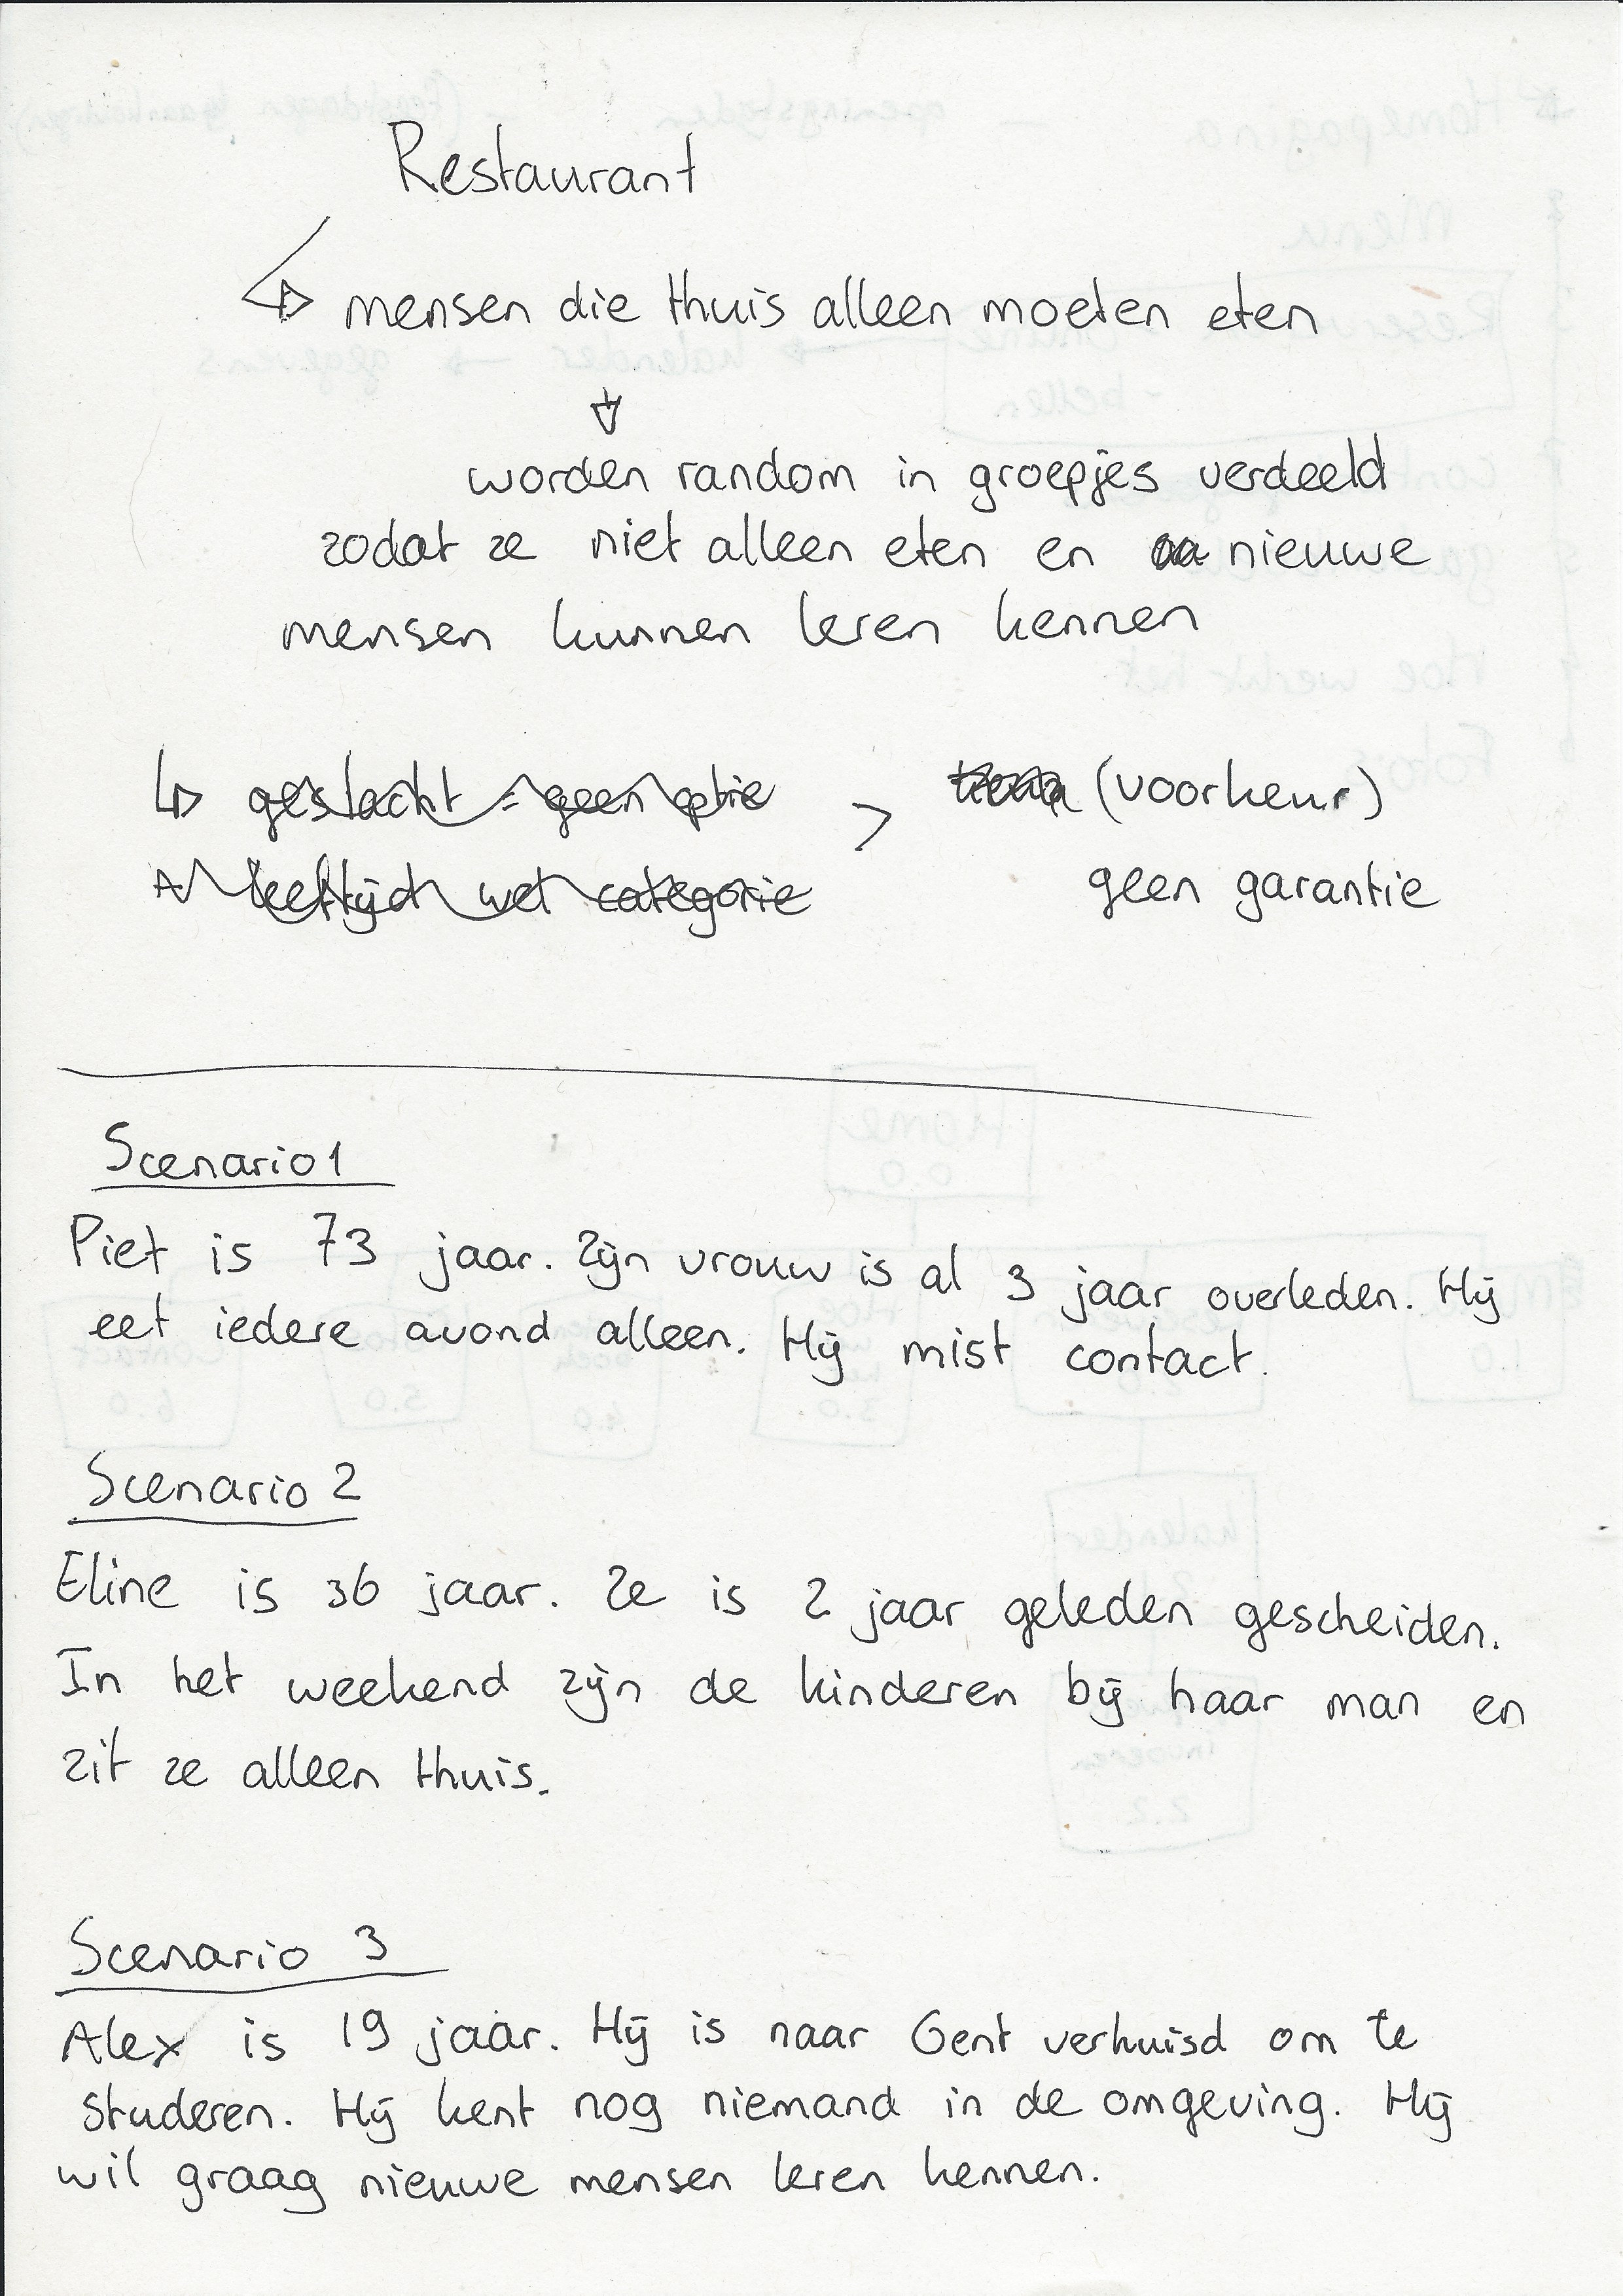 Restaurant
mensen die thuis alleen moeten eten
worden random in groepjes verdeeld
zodat ze niet alleen eten en nieuwe
mensen kunnen leren kennen
geslacht = geen optie > (voorkeur)
leeftijd wel categorie geen garantie
Scenario 1
Piet is 73 jaar. Zijn vrouw is al 3 jaar overleden. Hij
eet iedere avond alleen. Hij mist contact.
Scenario 2
Eline is 36 jaar. Ze is 2 jaar geleden gescheiden.
In het weekend zijn de kinderen bij haar man en
zit ze alleen thuis.
Scenario 3
Alex is 19 jaar. Hij is naar Gent verhuisd om te
studeren. Hij kent nog niemand in de omgeving. Hij
wil graag nieuwe mensen leren kennen.